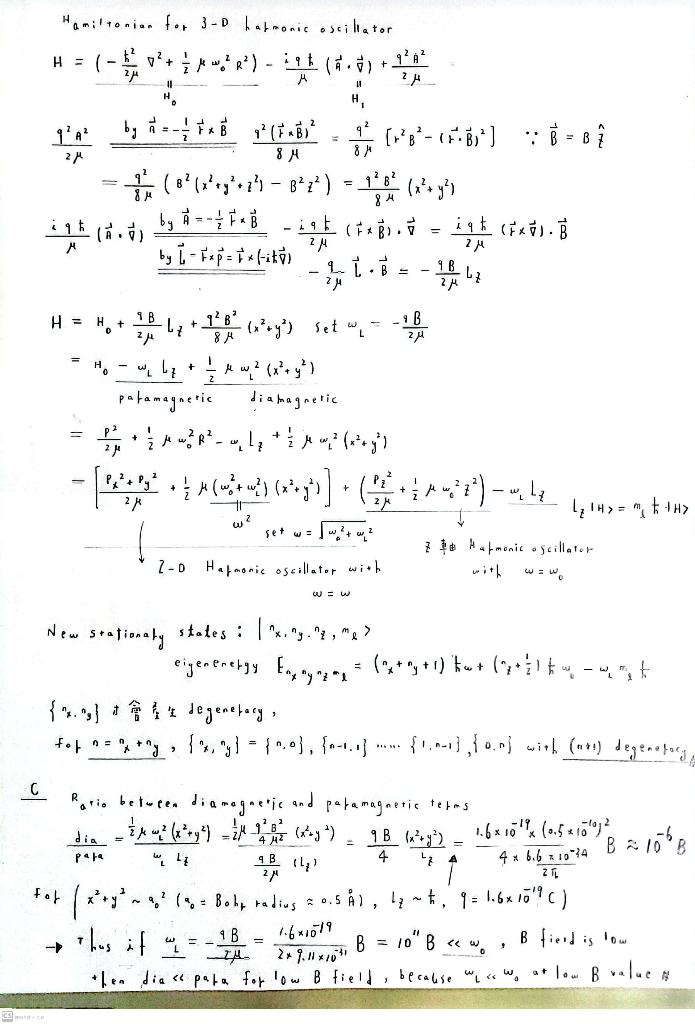 Hamiltonian for 3-D harmonic oscillator
H = (-ħ²/2μ ∇² + 1/2 μ ω₀² R²) - iqħ/μ (A⃗·∇⃗) + q²A²/2μ
H₀ H₁
q²A²/2μ by A⃗ = -1/2 r⃗×B⃗ q²(r⃗×B⃗)²/8μ = q²/8μ [r²B² - (r⃗·B⃗)²] ∵ B⃗ = B ẑ
= q²/8μ (B²(x²+y²+z²) - B²z²) = q²B²/8μ (x²+y²)
iqħ/μ (A⃗·∇⃗) by A⃗ = -1/2 r⃗×B⃗ - iqħ/2μ (r⃗×B⃗)·∇⃗ = iqħ/2μ (r⃗×∇⃗)·B⃗
by L⃗ = r⃗×p⃗ = r⃗×(-iħ∇⃗) - q/2μ L⃗·B⃗ = - qB/2μ L_z
H = H₀ + qB/2μ L_z + q²B²/8μ (x²+y²) set ω_L = - qB/2μ
= H₀ - ω_L L_z + 1/2 μ ω_L² (x²+y²)
paramagnetic diamagnetic
= P²/2μ + 1/2 μ ω₀² R² - ω_L L_z + 1/2 μ ω_L² (x²+y²)
= [(P_x²+P_y²)/2μ + 1/2 μ (ω₀²+ω_L²) (x²+y²)] + (P_z²/2μ + 1/2 μ ω₀² z²) - ω_L L_z L_z |H> = m_ℓ ħ |H>
ω²
set ω = √(ω₀²+ω_L²)
z 軸 Harmonic oscillator
with ω = ω₀
2-D Harmonic oscillator with
ω = ω
New stationary states : |n_x, n_y, n_z, m_ℓ >
eigenenergy E_{n_x n_y n_z m_ℓ} = (n_x+n_y+1) ħω + (n_z+1/2) ħ ω₀ - ω_L m_ℓ ħ
{n_x, n_y} 才會產生 degeneracy ,
for n = n_x+n_y , {n_x, n_y} = {n,0}, {n-1,1} ...... {1,n-1}, {0,n} with (n+1) degeneracy #
C Ratio between diamagnetic and paramagnetic terms
dia/para = 1/2 μ ω_L² (x²+y²) / ω_L L_z = 1/2 μ q²B²/4μ² (x²+y²) / qB/2μ (L_z) = qB/4 (x²+y²)/L_z = 1.6×10⁻¹⁹ × (0.5×10⁻¹⁰)² / (4 × 6.6×10⁻³⁴/2π) B ≈ 10⁻⁶ B
for ( x²+y² ~ a₀² (a₀ = Bohr radius ≈ 0.5 Å) , L_z ~ ħ, q = 1.6×10⁻¹⁹ C)
→ Thus if ω_L = - qB/2μ = 1.6×10⁻¹⁹/(2×9.11×10⁻³¹) B = 10¹¹ B << ω₀ , B field is low
then dia << para for low B field , because ω_L << ω₀ at low B value #
CS